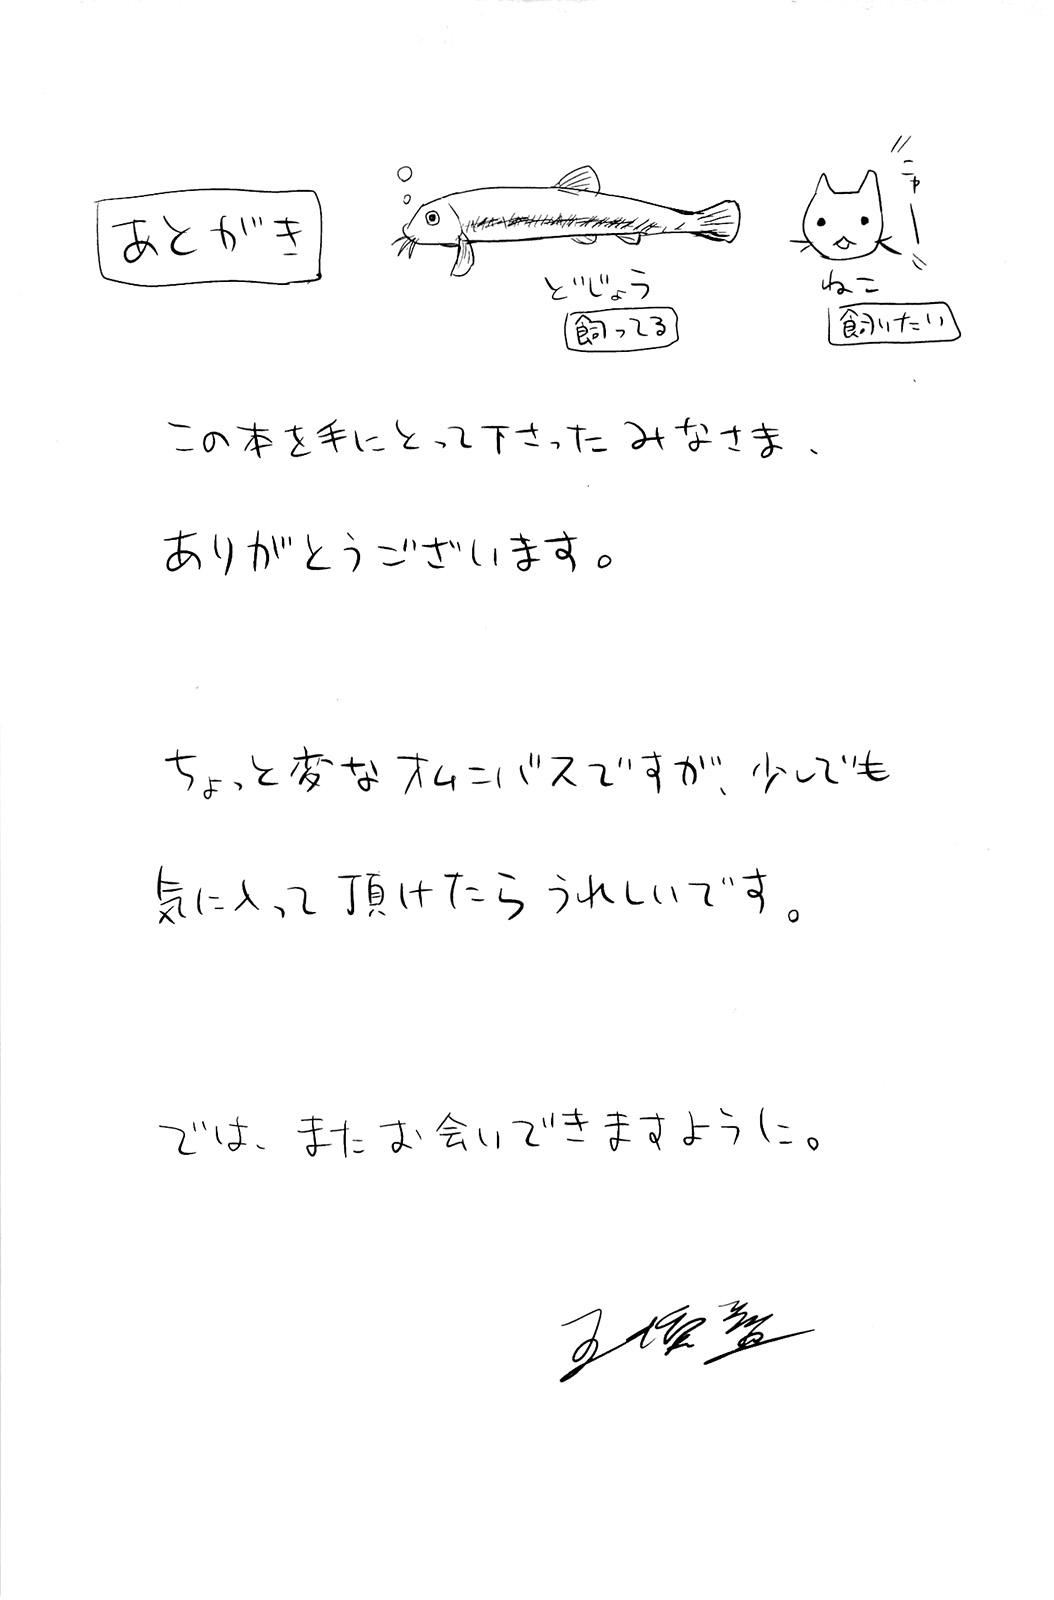 あとがき
どじょう
飼ってる
ニャー
ねこ
飼いたい
この本を手にとって下さったみなさま、
ありがとうございます。
ちょっと変なオムニバスですが、少しでも
気に入って頂けたらうれしいです。
では、またお会いできますように。